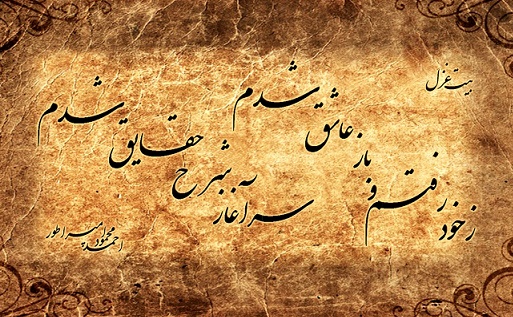 بیت غزل
ز خود رفتم و باز عاشق شدم
سراغاز به شرح حقایق شدم
احمد محمود امپراطور